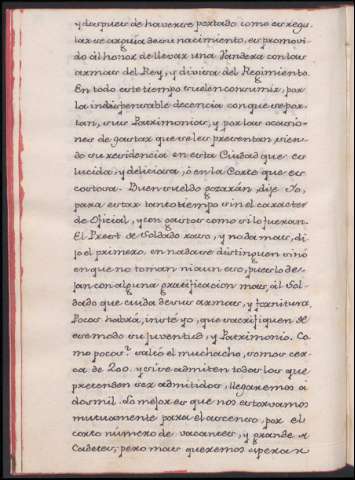 y despues de haverse portado como es regu-
lar se arguía de su nacimiento, es promovi-
do al honor de llevar una Vandera con las
armas del Rey, y divisa del Regimiento.
En todo este tiempo suelen consumir, por
la indispensable decencia con que se por-
tan, sus Patrimonios, y por las ocasio-
nes de gastar que se les presentan, sien-
do su residencia en esta Ciudad que es
lucida y deliciosa, ó en la Corte que es
costosa. Buen sueldo gozarán, dije Yo,
para estar tanto tiempo sin el caracter
de Oficial, y con gastos como si lo fueran.
El Prest de Soldado raso, y nada mas, di-
jo el primero, en nada se distinguen sinó
en que no toman ni aun eso, pues lo de-
jan con alguna gratificacion mas, al Sol-
dado que cuida de sus armas, y fornitura.
Pocos habrá, insté yo, que sacrifiquen de
ese modo su juventud, y Patrimonio. Co-
mo pocos? saltó el muchacho, somos cer-
ca de 200. y si se admiten todos los que
pretenden ser admitidos, llegaremos á
dos mil. Lo mejor es que nos estorvamos
mutuamente para el ascenso, por el
corto número de vacantes, y grande de
Cadetes; pero mas queremos esperar